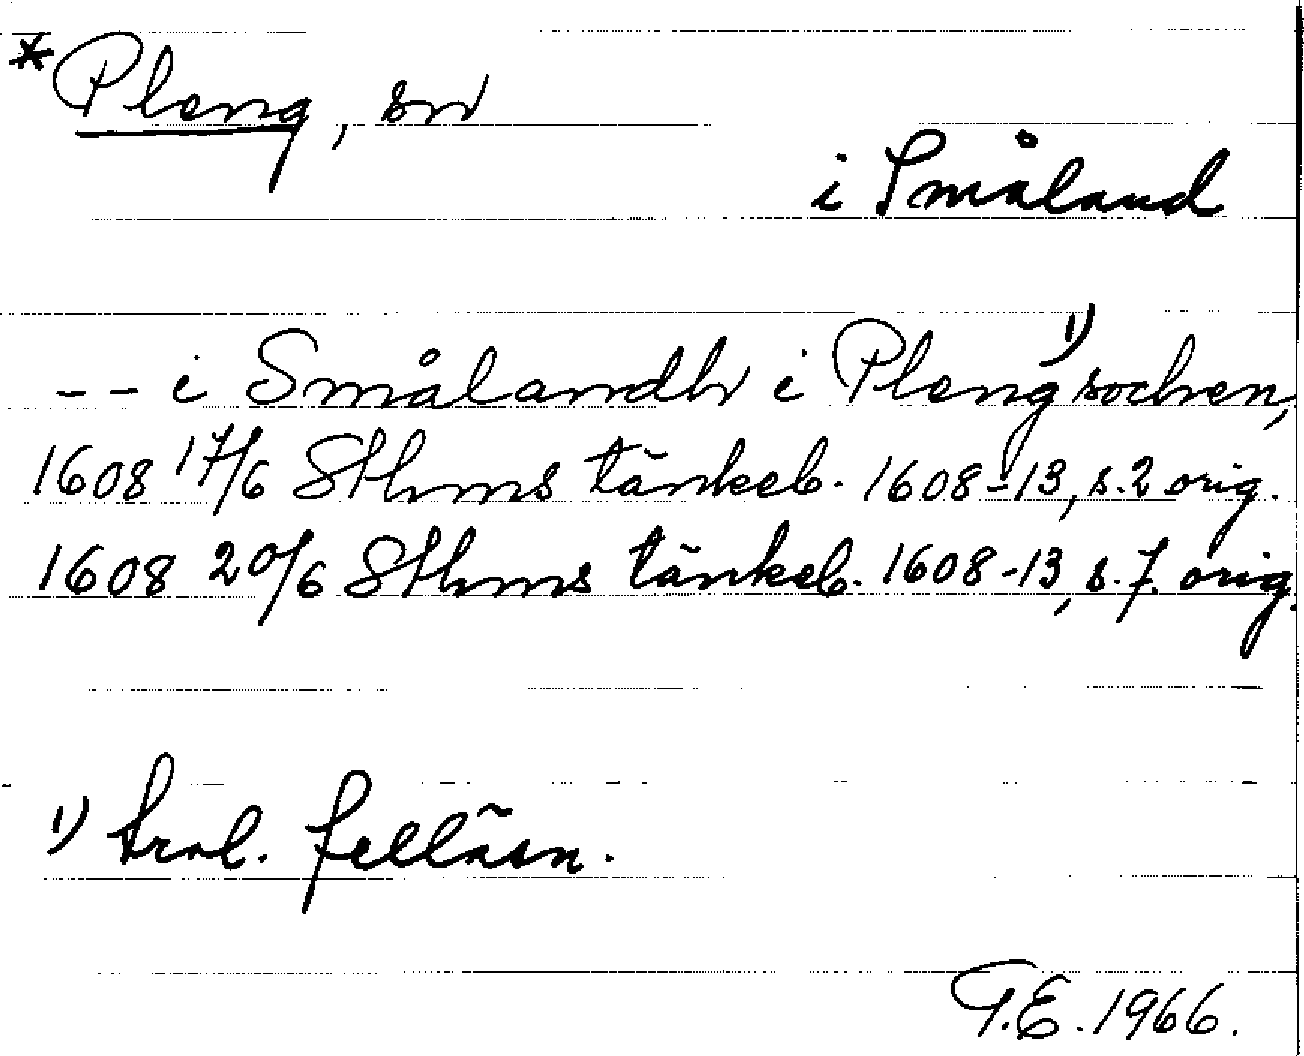 *Pleng, sn
i Småland
-- i Smålandh i Pleng¹⁾ sochen,
1608 17/6 Sthms tänkeb. 1608-13, s. 2 orig.
1608 20/6 Sthms tänkeb. 1608-13, s. 7. orig.
1) trol. felläsn.
T.E. 1966.